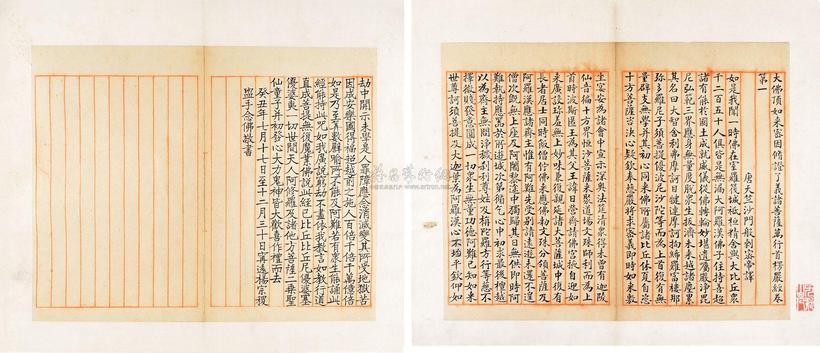 大佛頂如來密因修證了義諸菩薩萬行首楞嚴經卷
第一
唐天竺沙門般剌密帝譯
如是我聞一時佛在室羅筏城祇桓精舍與大比丘衆
千二百五十人俱皆是無漏大阿羅漢佛子住持善超
諸有能於國土成就威儀從佛轉輪妙堪遺囑嚴淨毘
尼弘範三界應身無量度脫衆生拔濟未來越諸塵累
其名曰大智舍利弗摩訶目犍連摩訶拘絺羅富樓那
彌多羅尼子須菩提優波尼沙陀等而為上首復有無
量辟支無學并其初心同來佛所屬諸比丘休夏自恣
十方菩薩咨決心疑欽奉慈嚴將求密義即時如來敷
座宴安為諸會中宣示深奧法筵清衆得未曾有迦陵
仙音徧十方界恒沙菩薩來聚道場文殊師利而為上
首時波斯匿王為其父王諱日營齋請佛宮掖自迎如
來廣設珍羞無上妙味兼復親延諸大菩薩城中復有
長者居士同時飯僧佇佛來應佛勑文殊分領菩薩及
阿羅漢應諸齋主惟有阿難先受別請遠遊未還不遑
僧次既無上座及阿闍黎途中獨歸其日無供即時阿
難執持應器於所遊城次第循乞心中初求最後檀越
以為齋主無問淨穢剎利尊姓及旃陀羅方行等慈不
擇微賤發意圓成一切衆生無量功德阿難已知如來
世尊訶須菩提及大迦葉為阿羅漢心不均平欽仰如
劫中開示未學是人罪障應念消滅變其所受地獄苦
因成安樂國得福超越前之施人百倍千倍千萬億倍
如是乃至算數譬喻所不能及阿難若有衆生能誦此
經能持此咒如我廣說窮劫不盡依我教言如教行道
直成菩提無復魔業佛說此經已比丘比丘尼優婆塞
優婆夷一切世間天人阿修羅及諸他方菩薩二乘聖
仙童子并初發心大力鬼神皆大歡喜作禮而去
癸丑年七月十七日至十二月三十日寧遠楊宗稷
盥手念佛敬書